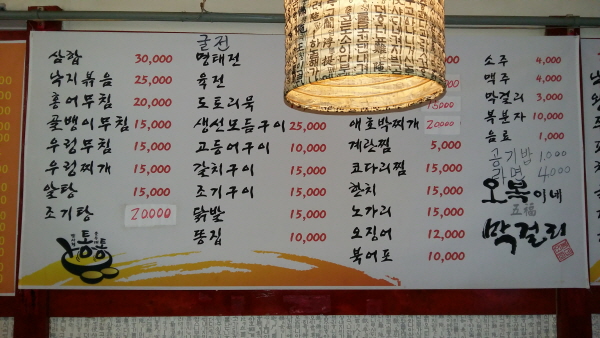 삼합 30,000
낙지볶음 25,000
홍어무침 20,000
골뱅이무침 15,000
우렁무침 15,000
우렁찌개 15,000
알탕 15,000
조기탕 20,000
굴전
명태전
육전
도토리묵
생선모듬구이 25,000
고등어구이 10,000
갈치구이 15,000
조기구이 15,000
닭발 15,000
똥집 10,000
15,000
애호박찌개 20000
계란찜 5,000
코다리찜 15,000
한치 15,000
노가리 15,000
오징어 12,000
북어포 10,000
소주 4,000
맥주 4,000
막걸리 3,000
복분자 10,000
음료 1,000
공기밥 1.000
라면 4.000
오복이네
五福
막걸리
통통